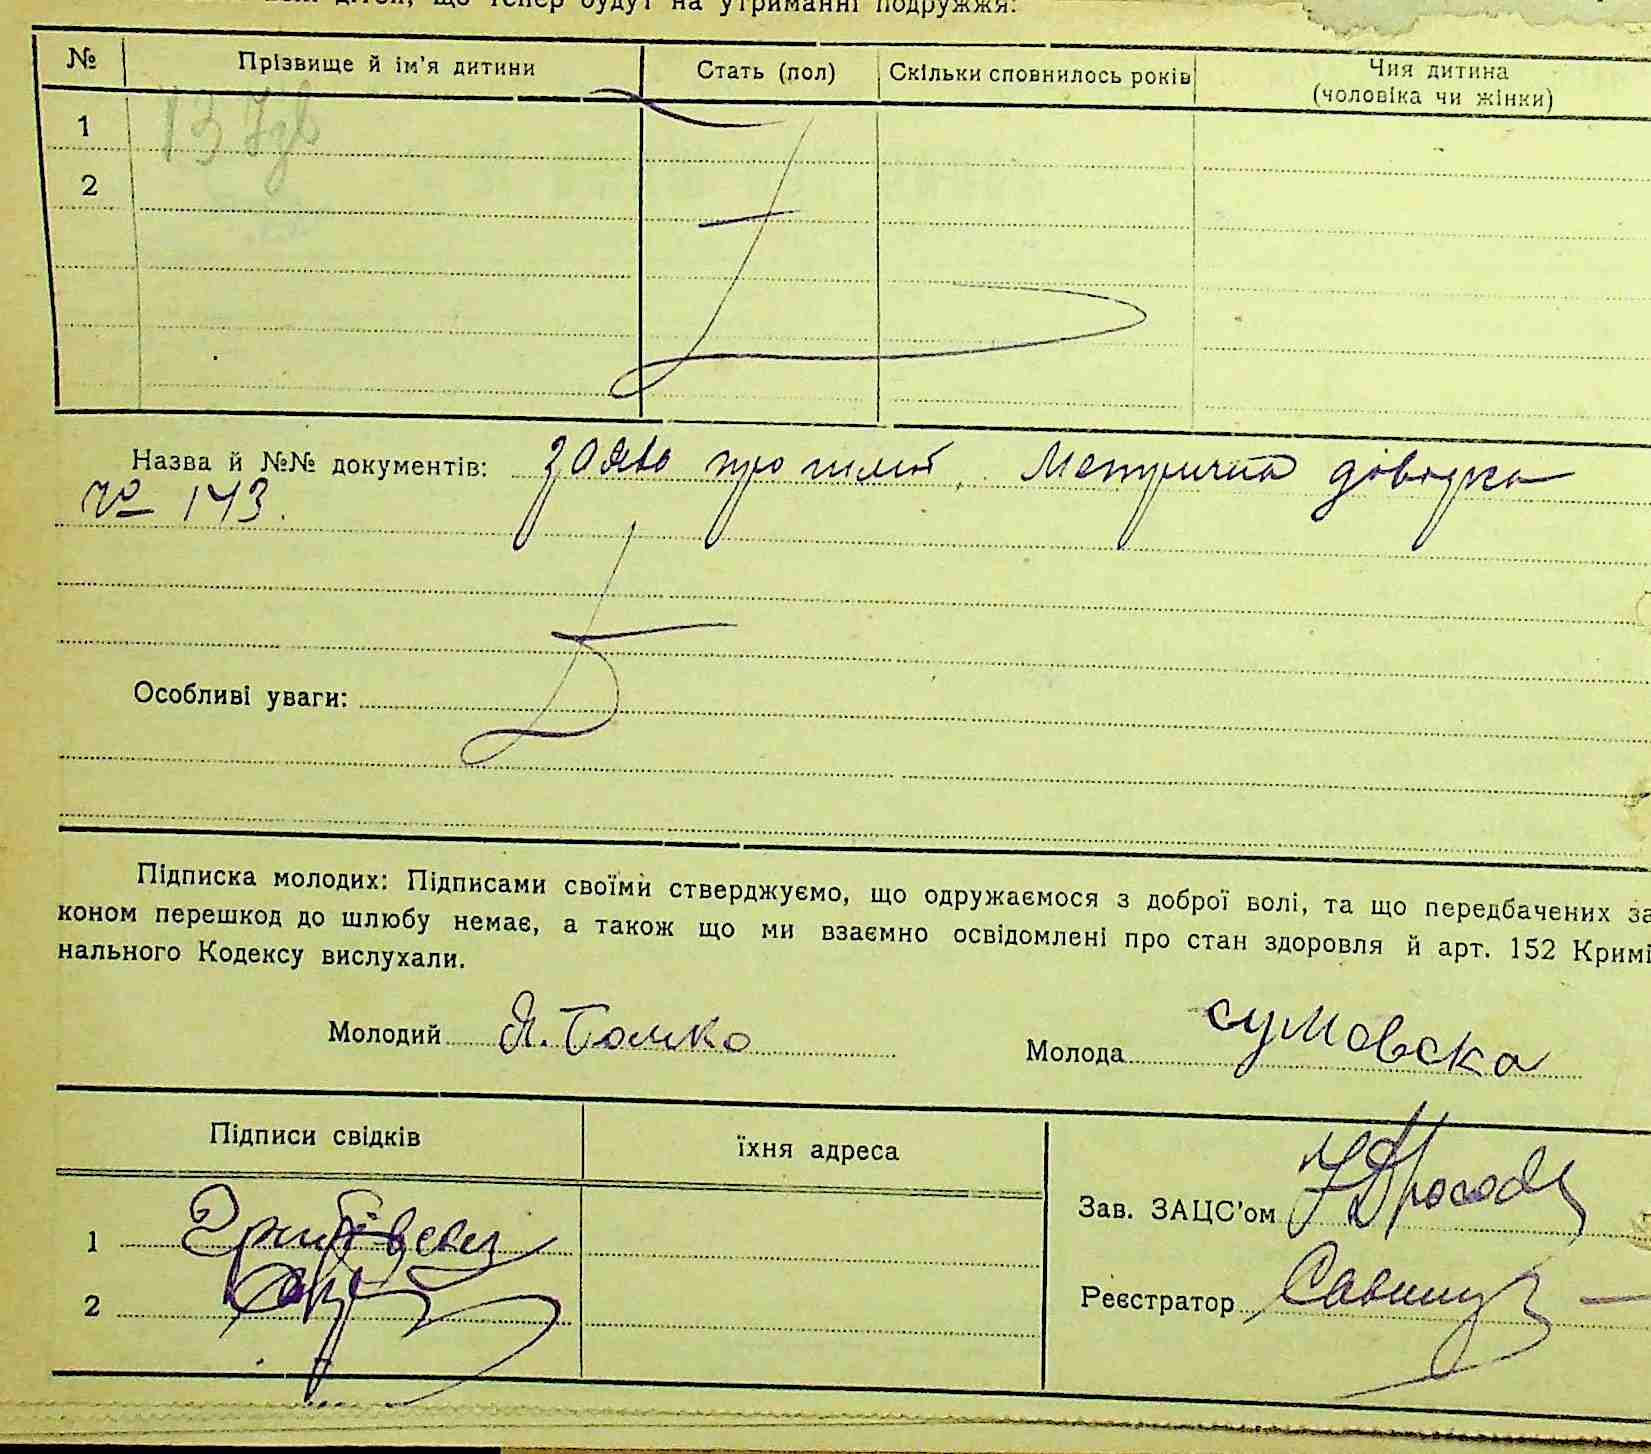 дітей, що тепер будут на утриманні подружжя:
№ Прізвище й ім'я дитини Стать (пол) Скільки сповнилось років Чия дитина (чоловіка чи жінки)
1
2
Назва й №№ документів: заява про шлюб, Метрична довідка
№ 143.
Особливі уваги:
Підписка молодих: Підписами своїми стверджуємо, що одружаємося з доброї волі, та що передбачених за
коном перешкод до шлюбу немає, а також що ми взаємно освідомлені про стан здоровля й арт. 152 Кримі
нального Кодексу вислухали.
Молодий Я. Бомко Молода Сумовска
Підписи свідків їхня адреса
Зав. ЗАЦС'ом
1
Реєстратор
2